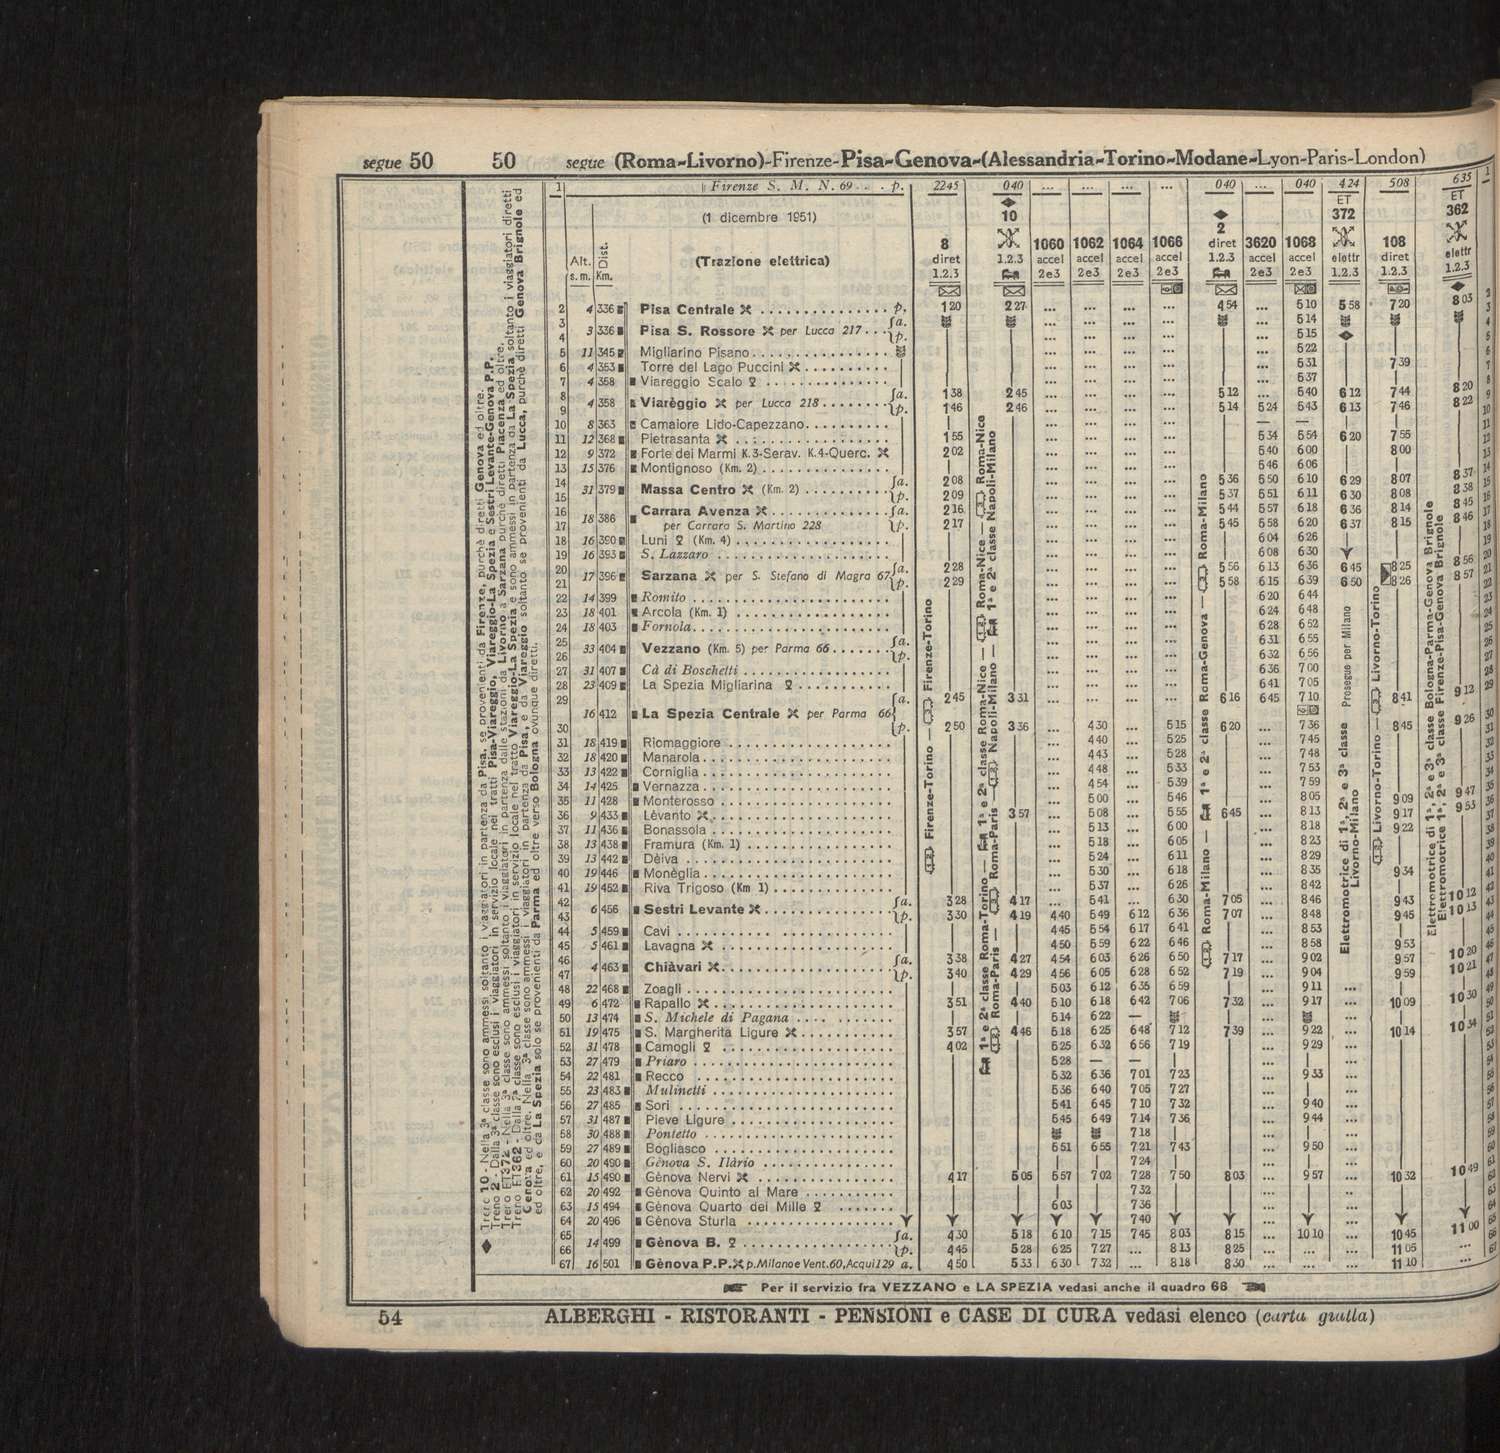 segue 50 50 segue (Roma-Livorno)-Firenze-Pisa-Genova-(Alessandria-Torino-Modane-Lyon-Paris-London)
1 Firenze S. M. N. 69 . . . p. 2245 040 ... ... ... ... 040 ... 040 424 508 635 1
(1 dicembre 1951)
Alt. s. m. Dist. Km. (Trazione elettrica)
8 diret 1.2.3
10 1.2.3
1060 accel 2e3
1062 accel 2e3
1064 accel 2e3
1066 accel 2e3
2 diret 1.2.3
3620 accel 2e3
1068 accel 2e3
ET 372 elettr 1.2.3
108 diret 1.2.3
ET 362 elettr 1.2.3
2 4 336 Pisa Centrale p. 1 20 2 27 ... ... ... ... 4 54 ... 5 10 5 58 7 20 8 03
3 a. ... ... ... ... ... 5 14
3 336 Pisa S. Rossore per Lucca 217
4 p. ... ... ... ... ... 5 15
5 11 345 Migliarino Pisano ... ... ... ... ... 5 22
6 4 353 Torre del Lago Puccini ... ... ... ... ... 5 31 7 39
7 4 358 Viareggio Scalo ... ... ... ... ... 5 37
8 a. 1 38 2 45 ... ... ... ... 5 12 ... 5 40 6 12 7 44 8 20
4 358 Viarèggio per Lucca 218
9 p. 1 46 2 46 ... ... ... ... 5 14 5 24 5 43 6 13 7 46 8 22
10 8 363 Camaiore Lido-Capezzano ... ... ... ... — —
11 12 368 Pietrasanta 1 55 ... ... ... ... 5 34 5 54 6 20 7 55
12 9 372 Forte dei Marmi K.3-Serav. K.4-Querc. 2 02 ... ... ... ... 5 40 6 00 8 00
13 15 376 Montignoso (Km. 2) ... ... ... ... 5 46 6 06
14 a. 2 08 ... ... ... ... 5 36 5 50 6 10 6 29 8 07 8 37
31 379 Massa Centro (Km. 2)
15 p. 2 09 ... ... ... ... 5 37 5 51 6 11 6 30 8 08 8 38
16 Carrara Avenza a. 2 16 ... ... ... ... 5 44 5 57 6 18 6 36 8 14 8 45
18 386
17 per Carrara S. Martino 228 p. 2 17 ... ... ... ... 5 45 5 58 6 20 6 37 8 15 8 46
18 16 390 Luni (Km. 4) ... ... ... ... 6 04 6 26
19 16 393 S. Lazzaro ... ... ... ... 6 08 6 30
20 a. 2 28 ... ... ... ... 5 56 6 13 6 36 6 45 8 25 8 56
17 396 Sarzana per S. Stefano di Magra 67
21 p. 2 29 ... ... ... ... 5 58 6 15 6 39 6 50 8 26 8 57
22 14 399 Romito ... ... ... ... 6 20 6 44
23 18 401 Arcola (Km. 1) ... ... ... ... 6 24 6 48
24 18 403 Fornola ... ... ... ... 6 28 6 52
25 a. ... ... ... ... 6 31 6 55
33 404 Vezzano (Km. 5) per Parma 66
26 p. ... ... ... ... 6 32 6 56
27 31 407 Cà di Boschetti ... ... ... ... 6 36 7 00
28 23 409 La Spezia Migliarina ... ... ... ... 6 41 7 05
29 a. 2 45 3 31 ... ... ... ... 6 16 6 45 7 10 8 41 9 12
16 412 La Spezia Centrale per Parma 66
30 p. 2 50 3 36 ... 4 30 ... 5 15 6 20 ... 7 36 8 45 9 26
31 18 419 Riomaggiore ... 4 40 ... 5 25 ... 7 45
32 18 420 Manarola ... 4 43 ... 5 28 ... 7 48
33 13 422 Corniglia ... 4 48 ... 5 33 ... 7 53
34 14 425 Vernazza ... 4 54 ... 5 39 ... 7 59
35 11 428 Monterosso ... 5 00 ... 5 46 ... 8 05 9 09 9 47
36 9 433 Lèvanto 3 57 ... 5 08 ... 5 55 6 45 ... 8 13 9 17 9 53
37 11 436 Bonassola ... 5 13 ... 6 00 ... 8 18 9 22
38 13 438 Framura (Km. 1) ... 5 18 ... 6 05 ... 8 23
39 13 442 Dèiva ... 5 24 ... 6 11 ... 8 29
40 19 446 Monèglia ... 5 30 ... 6 18 ... 8 35 9 34
41 19 452 Riva Trigoso (Km 1) ... 5 37 ... 6 26 ... 8 42
42 a. 3 28 4 17 ... 5 41 ... 6 30 7 05 ... 8 46 9 43 10 12
6 456 Sestri Levante
43 p. 3 30 4 19 4 40 5 49 6 12 6 36 7 07 ... 8 48 9 45 10 13
44 5 459 Cavi 4 45 5 54 6 17 6 41 ... 8 53
45 5 461 Lavagna 4 50 5 59 6 22 6 46 ... 8 58 9 53
46 a. 3 38 4 27 4 54 6 03 6 26 6 50 7 17 ... 9 02 9 57 10 20
4 463 Chiàvari
47 p. 3 40 4 29 4 56 6 05 6 28 6 52 7 19 ... 9 04 9 59 10 21
48 22 468 Zoagli 5 03 6 12 6 35 6 59 ... 9 11 ...
49 6 472 Rapallo 3 51 4 40 5 10 6 18 6 42 7 06 7 32 ... 9 17 ... 10 09 10 30
50 13 474 S. Michele di Pagana 5 14 6 22 — ... ...
51 19 475 S. Margherita Ligure 3 57 4 46 5 18 6 25 6 48 7 12 7 39 ... 9 22 ... 10 14 10 34
52 31 478 Camogli 4 02 5 25 6 32 6 56 7 19 ... 9 29 ...
53 27 479 Priaro 5 28 — — ... ...
54 22 481 Recco 5 32 6 36 7 01 7 23 ... 9 33 ...
55 23 483 Mulinetti 5 36 6 40 7 05 7 27 ... ...
56 27 485 Sori 5 41 6 45 7 10 7 32 ... 9 40 ...
57 31 487 Pieve Ligure 5 45 6 49 7 14 7 36 ... 9 44 ...
58 30 488 Pontetto 7 18 ... ...
59 27 489 Bogliasco 6 51 6 55 7 21 7 43 ... 9 50 ...
60 20 490 Gènova S. Ilàrio 7 24 ... ...
61 15 490 Gènova Nervi 4 17 5 05 6 57 7 02 7 28 7 50 8 03 ... 9 57 ... 10 32 10 49
62 20 492 Gènova Quinto al Mare 7 32 ... ..
63 15 494 Gènova Quarto dei Mille 6 03 7 36 ... ...
64 20 496 Gènova Sturla 7 40 ... ...
65 a. 4 30 5 18 6 10 7 15 7 45 8 03 8 15 ... 10 10 ... 10 45 11 00
14 499 Gènova B.
66 p. 4 45 5 28 6 25 7 27 ... 8 13 8 25 ... ... ... 11 05 ...
67 16 501 Gènova P.P. p. Milano e Vent. 60, Acqui 129 a. 4 50 5 33 6 30 7 32 ... 8 18 8 30 ... ... ... 11 10 ...
Firenze-Torino — Firenze-Torino
1ª e 2ª classe Roma-Torino — 1ª e 2ª classe Roma-Nice — Roma-Nice — Roma-Nice
Roma-Paris — Roma-Paris — Napoli-Milano — 1ª e 2ª classe Napoli-Milano
Roma-Milano — 1ª e 2ª classe Roma-Genova — Roma-Milano
Elettromotrice di 1ª, 2ª e 3ª classe
Livorno-Milano
Prosegue per Milano
Livorno-Torino — Livorno-Torino
Elettromotrice di 1ª, 2ª e 3ª classe Bologna-Parma-Genova Brignole
Elettromotrice 1ª, 2ª e 3ª classe Firenze-Pisa-Genova Brignole
Treno 10 - Nella 3ª classe sono ammessi soltanto i viaggiatori in partenza da Pisa, se provenienti da Firenze, purchè diretti Genova ed oltre.
Treno 2 - Dalla 3ª classe sono esclusi i viaggiatori in servizio locale nei tratti Pisa-Viareggio, Viareggio-La Spezia e Sestri Levante-Genova P.P.
Treno ET372 - Nella 3ª classe sono ammessi soltanto i viaggiatori in partenza dalle stazioni da Livorno a Sarzana purchè diretti Piacenza ed oltre.
Treno ET362 - Dalla 3ª classe sono esclusi i viaggiatori in servizio locale nel tratto Viareggio-La Spezia e sono ammessi in partenza da La Spezia soltanto i viaggiatori diretti
Genova ed oltre. Nella 3ª classe sono ammessi i viaggiatori in partenza da Pisa, e da Viareggio soltanto se provenienti da Lucca, purchè diretti Genova Brignole ed
ed oltre, e da La Spezia solo se provenienti da Parma ed oltre verso Bologna ovunque diretti.
Per il servizio fra VEZZANO e LA SPEZIA vedasi anche il quadro 66
54 ALBERGHI - RISTORANTI - PENSIONI e CASE DI CURA vedasi elenco (carta gialla)